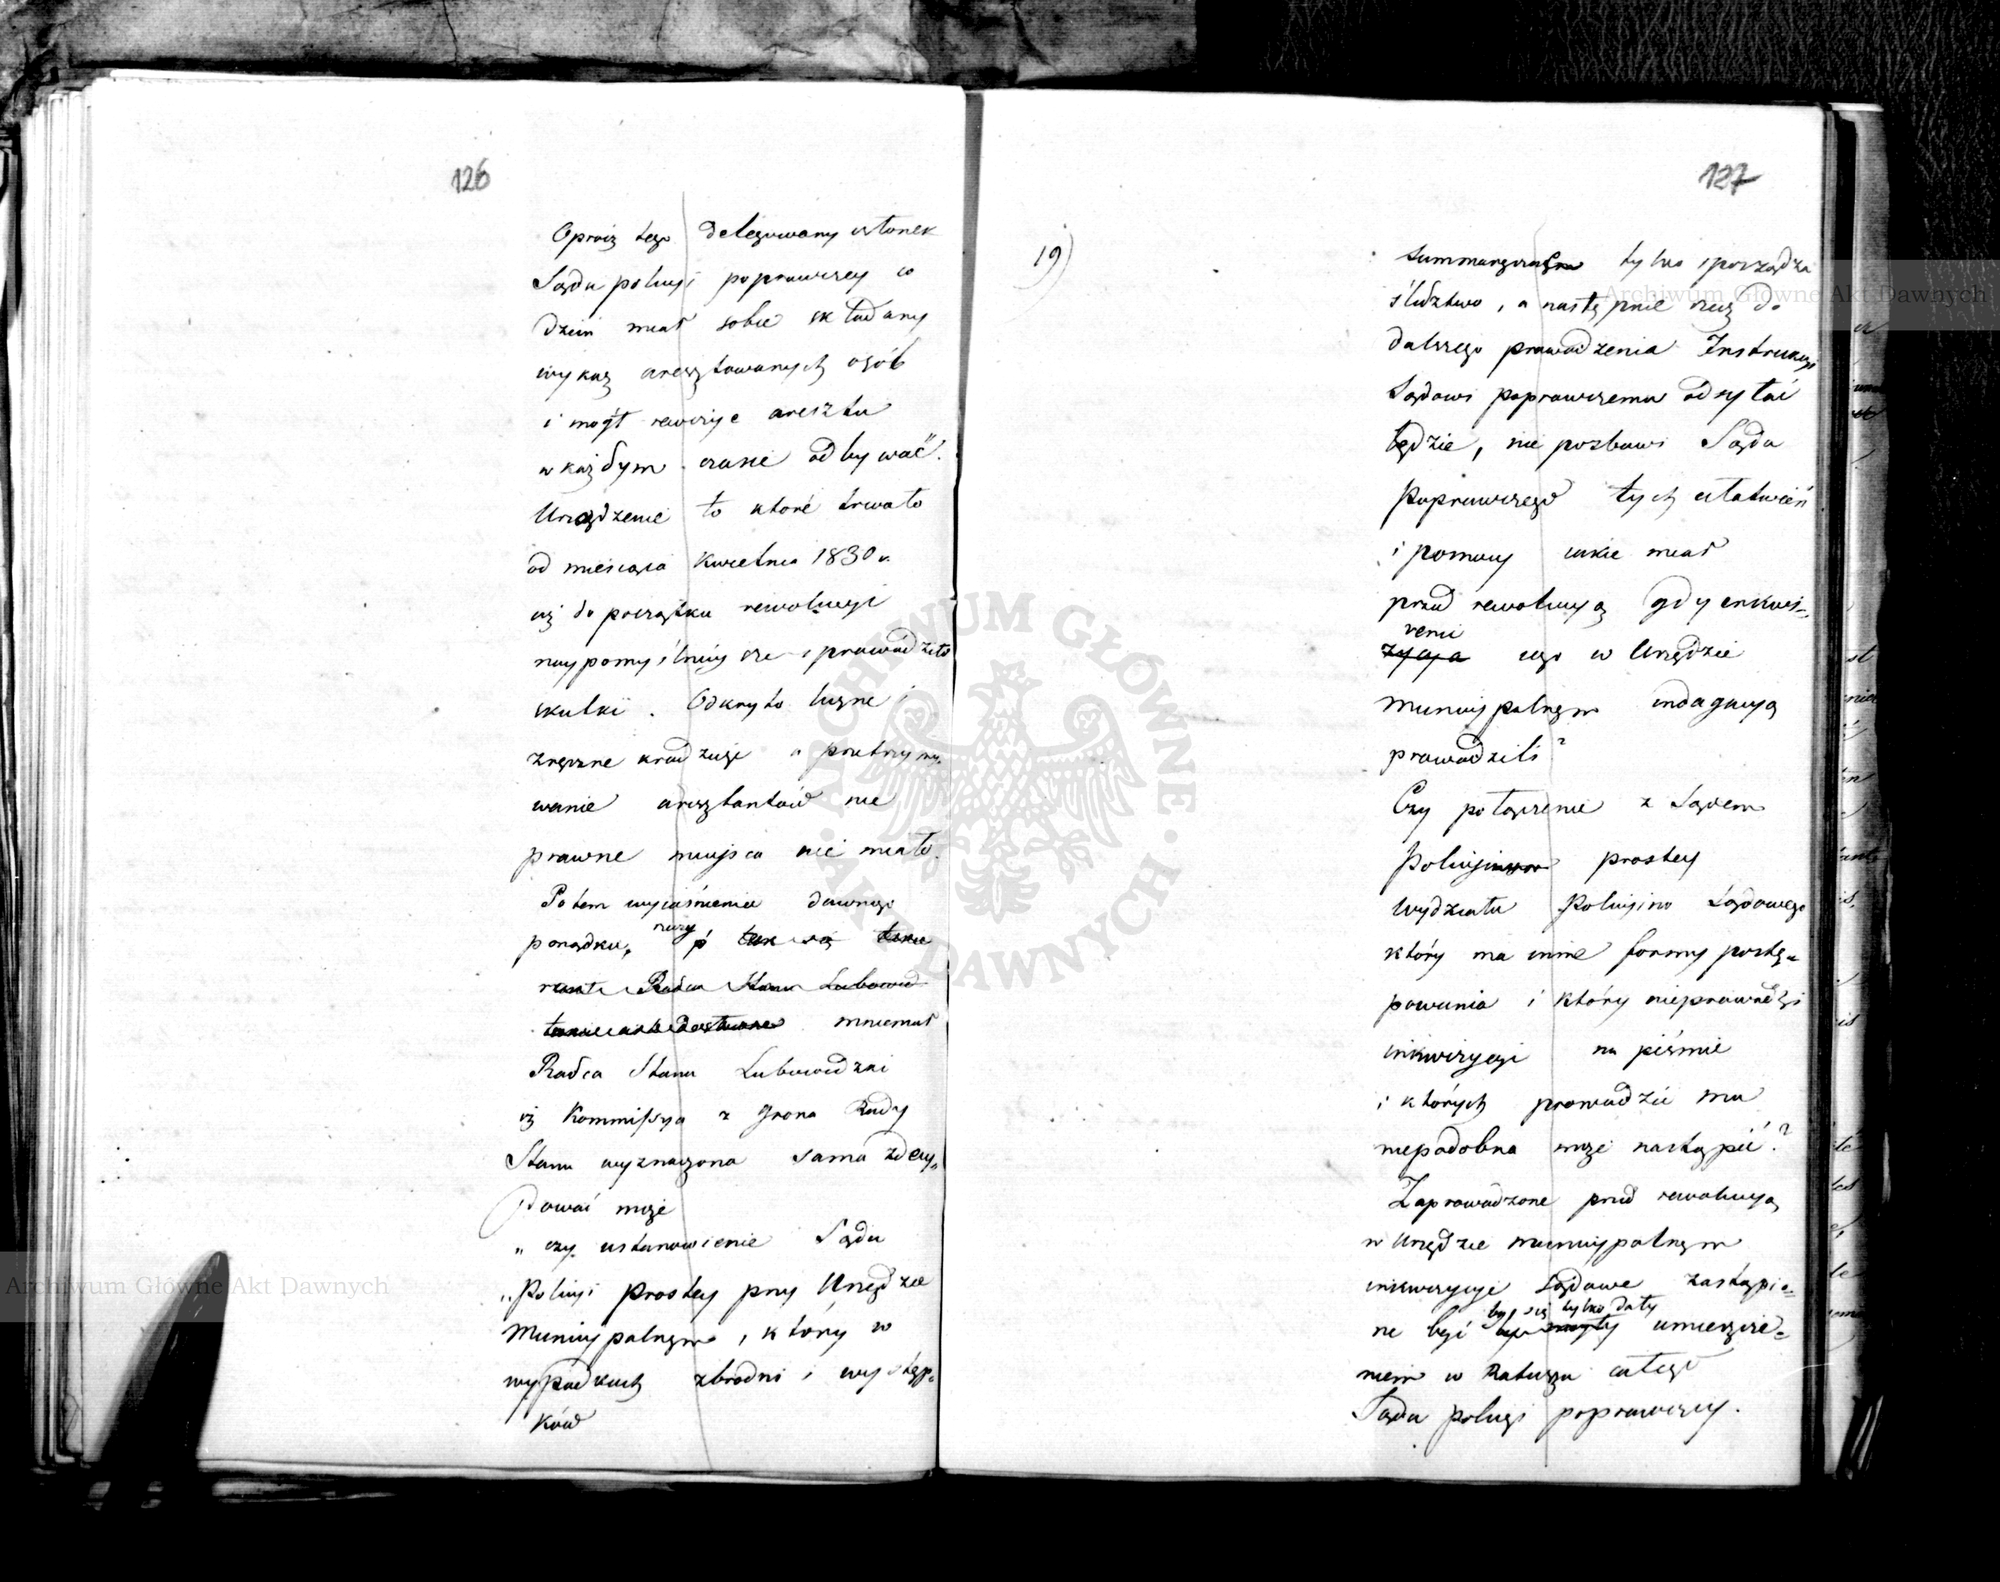 126
Oprócz tego delegowany członek
Sądu policyi poprawczey co
dzień miał sobie składany
wykaz aresztowanych osób
i mógł rewizye aresztu
w każdym czasie odbywać.
Urządzenie to które trwało
od miesiąca Kwietnia 1830 r.
aż do początku rewolucyi
naypomyślnieysze sprowadziło
skutki. Odkryto liczne i
zręczne kradzieże a przetrzymy-
wanie aresztantów nie
prawne miejsca nie miało.
Po tem wyjaśnieniu dawnego
porządku, rzeczy
Radca Stanu Lubowid
mniemał
Radca Stanu Lubowidzki
iż Kommissya z grona Rady
Stanu wyznaczona sama zdecy-
dować może
„ czy ustanowienie Sądu
„Policyi prostey przy Urzędzie
Municypalnym, który w
wypadkach zbrodni i występ-
ków
127
19)
summarycznie tylko sporządza
śledztwo, a następnie rzecz do
dalszego prowadzenia Instrukcyi
Sądowi poprawczemu odsyłać
będzie, nie pozbawi Sądu
Poprawczego tych ułatwień
i pomocy jakie miał
przed rewolucyą gdy inkwi-
renci
zycya jego w Urzędzie
Municypalnym indagacyą
prowadzili?
Czy połączenie z Sądem
Policyi prostey
Wydziału Policyino Sądowego
który ma inne formy postę-
powania i który nieprowadzi
inkwizycyi na piśmie
i których prowadzić mu
niepodobna może nastąpić?
Zaprowadzone przed rewolucyą
w Urzędzie municypalnym
inkwizycye Sądowe zastąpio-
by się tylko dały
ne być umieszcze-
niem w Ratuszu całego
Sądu policyi poprawczey.
Archiwum Główne Akt Dawnych
Archiwum Główne Akt Dawnych
ARCHIWUM GŁÓWNE AKT DAWNYCH